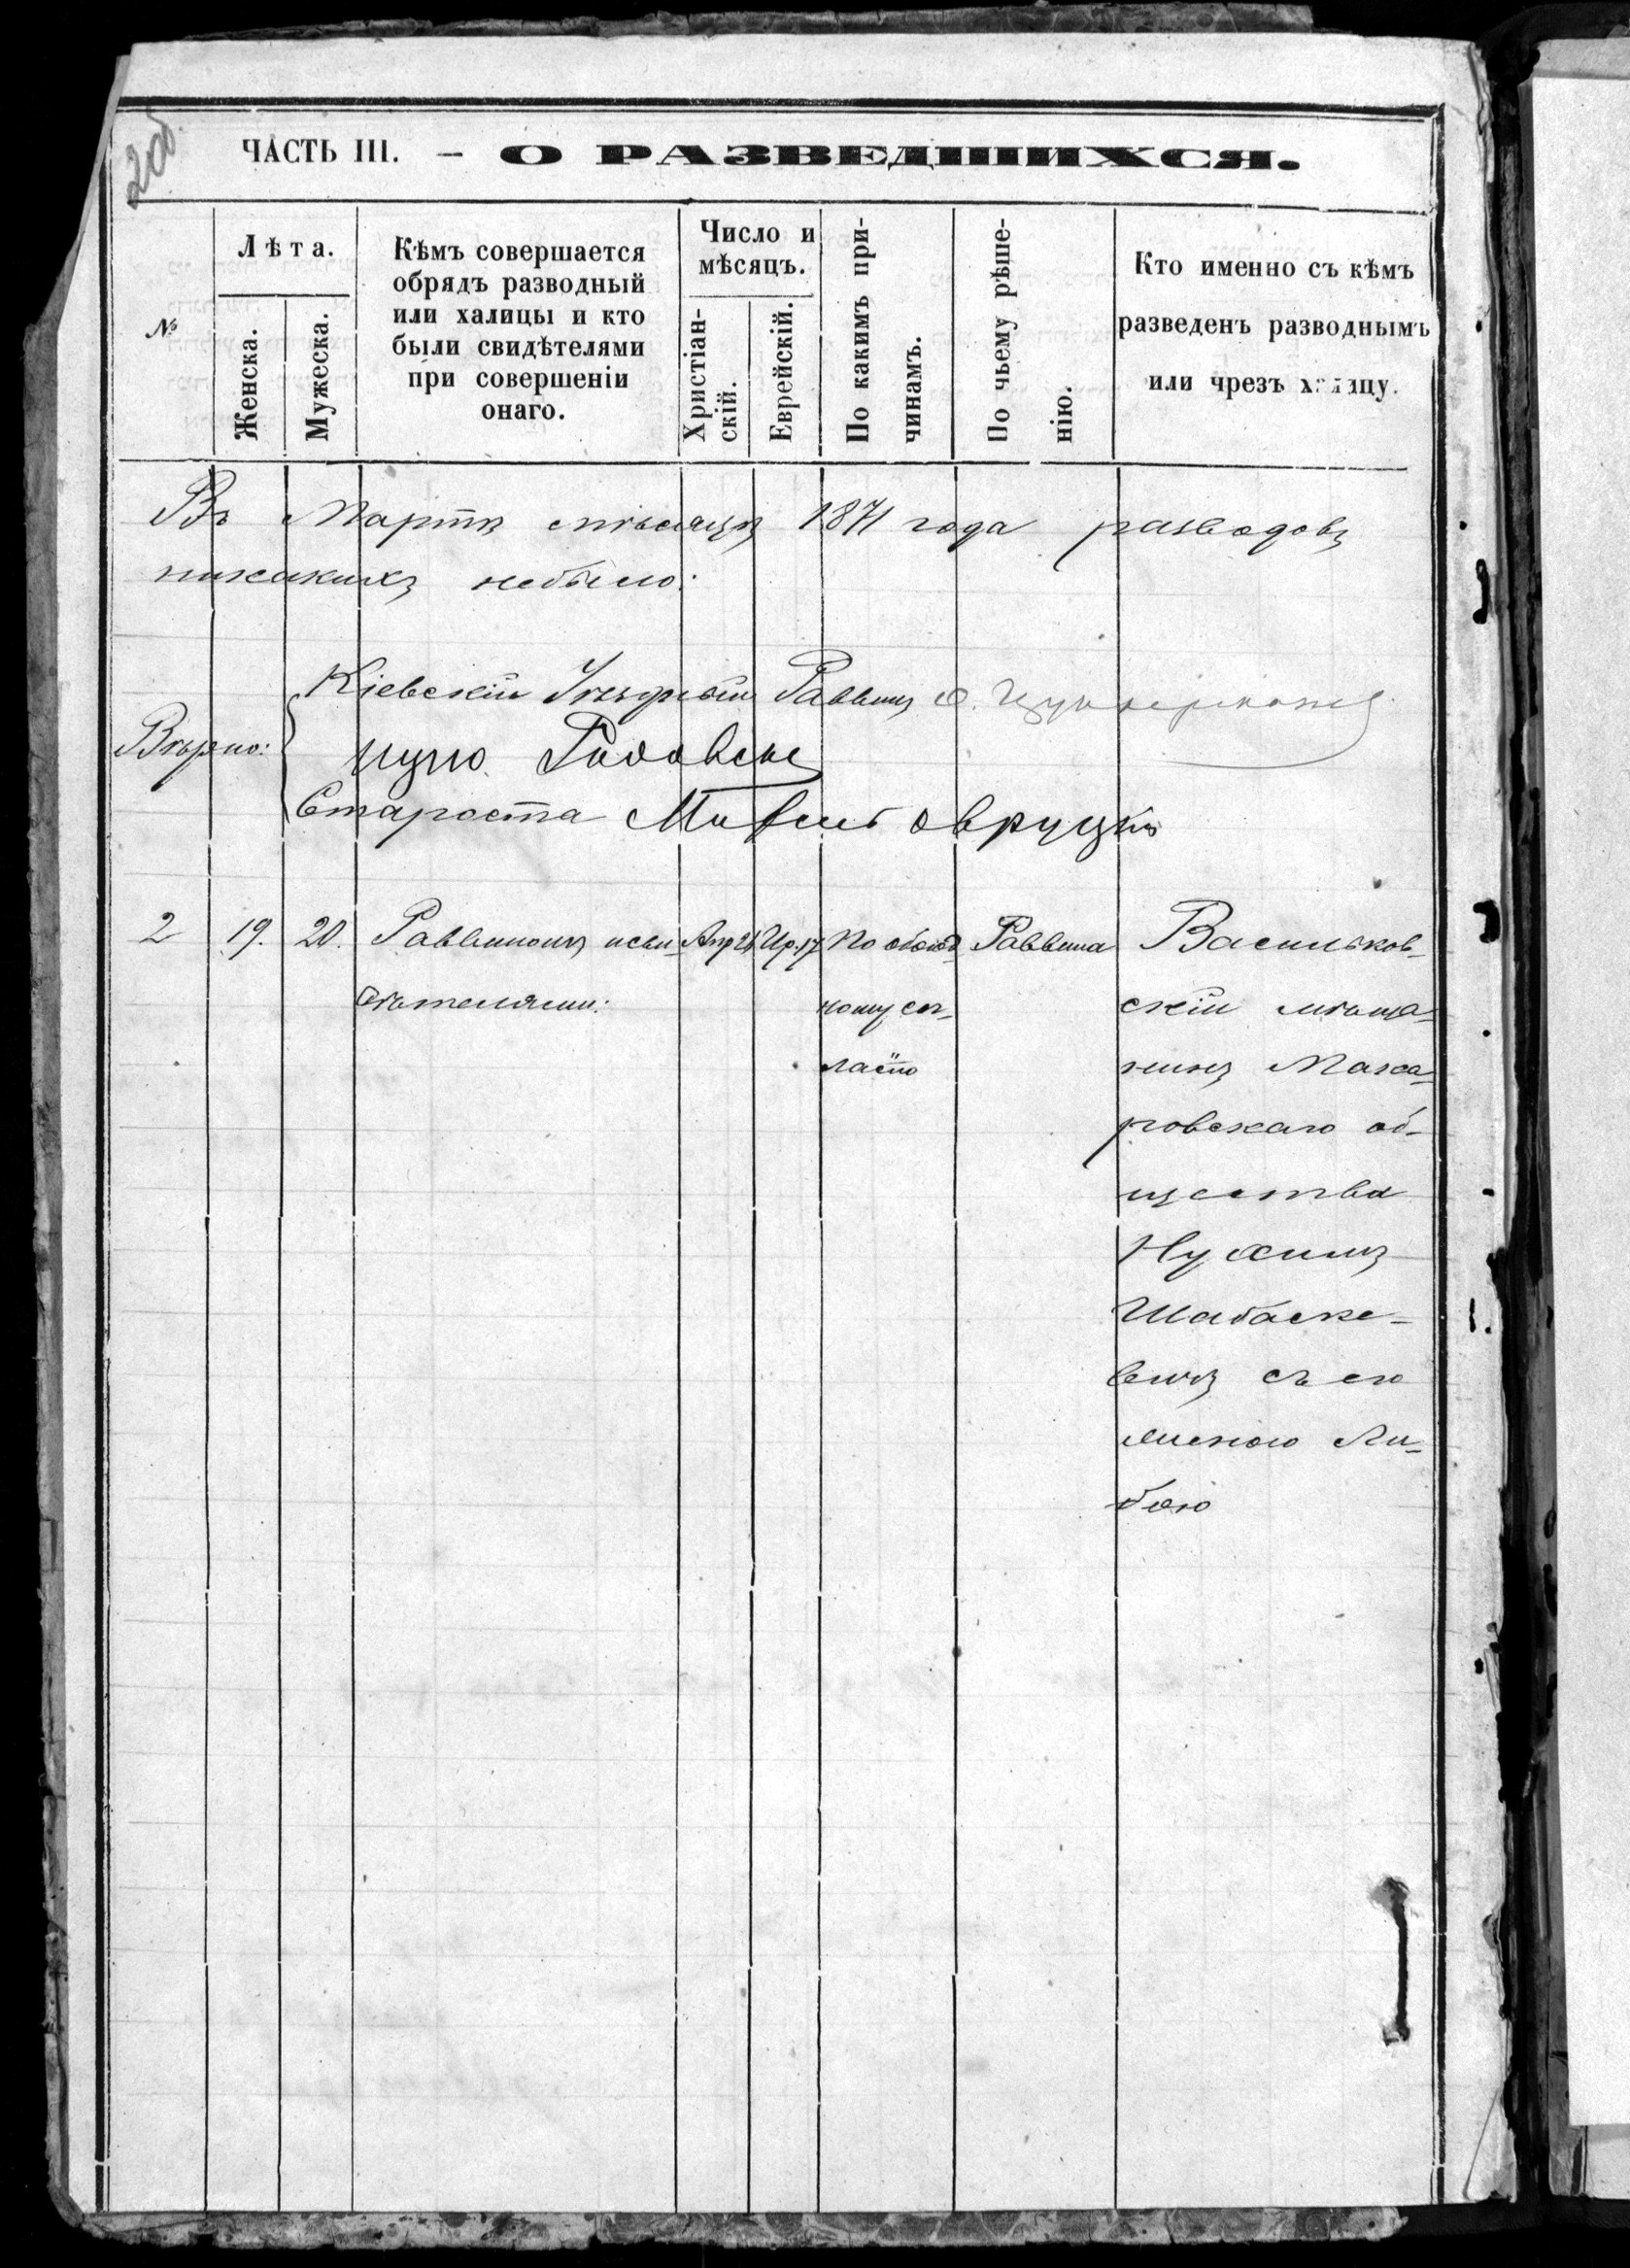 2об.
ЧАСТЬ III. – О РАЗВЕДШИХСЯ.
№
Лѣта.
Женска.
Мужеска.
Кѣмъ совершается
обрядъ разводный
или халицы и кто
были свидѣтелями
при совершеніи
онаго.
Число и
мѣсяцъ.
Христіан-
скій.
Еврейскій.
По какимъ при-
чинамъ.
По чьему рѣше-
нію.
Кто именно съ кѣмъ
разведенъ разводнымъ
или чрезъ халицу.
Въ Мартѣ мѣсяцѣ 1871 года разводовъ
никакихъ небыло:
Кіевскій Уѣздный Раввинъ
Вѣрно:
Староста Овруцкий
2 19. 20. Раввиномъ исви- Апр 21 Ир. 17 По обоюд- Раввина Васильков-
дѣтелями: ному сог- скій мѣща-
ласію нинъ Мака-
ровскаго об-
щества
Нухимъ
Шабаске-
вичъ съ его
женою Ли-
бою